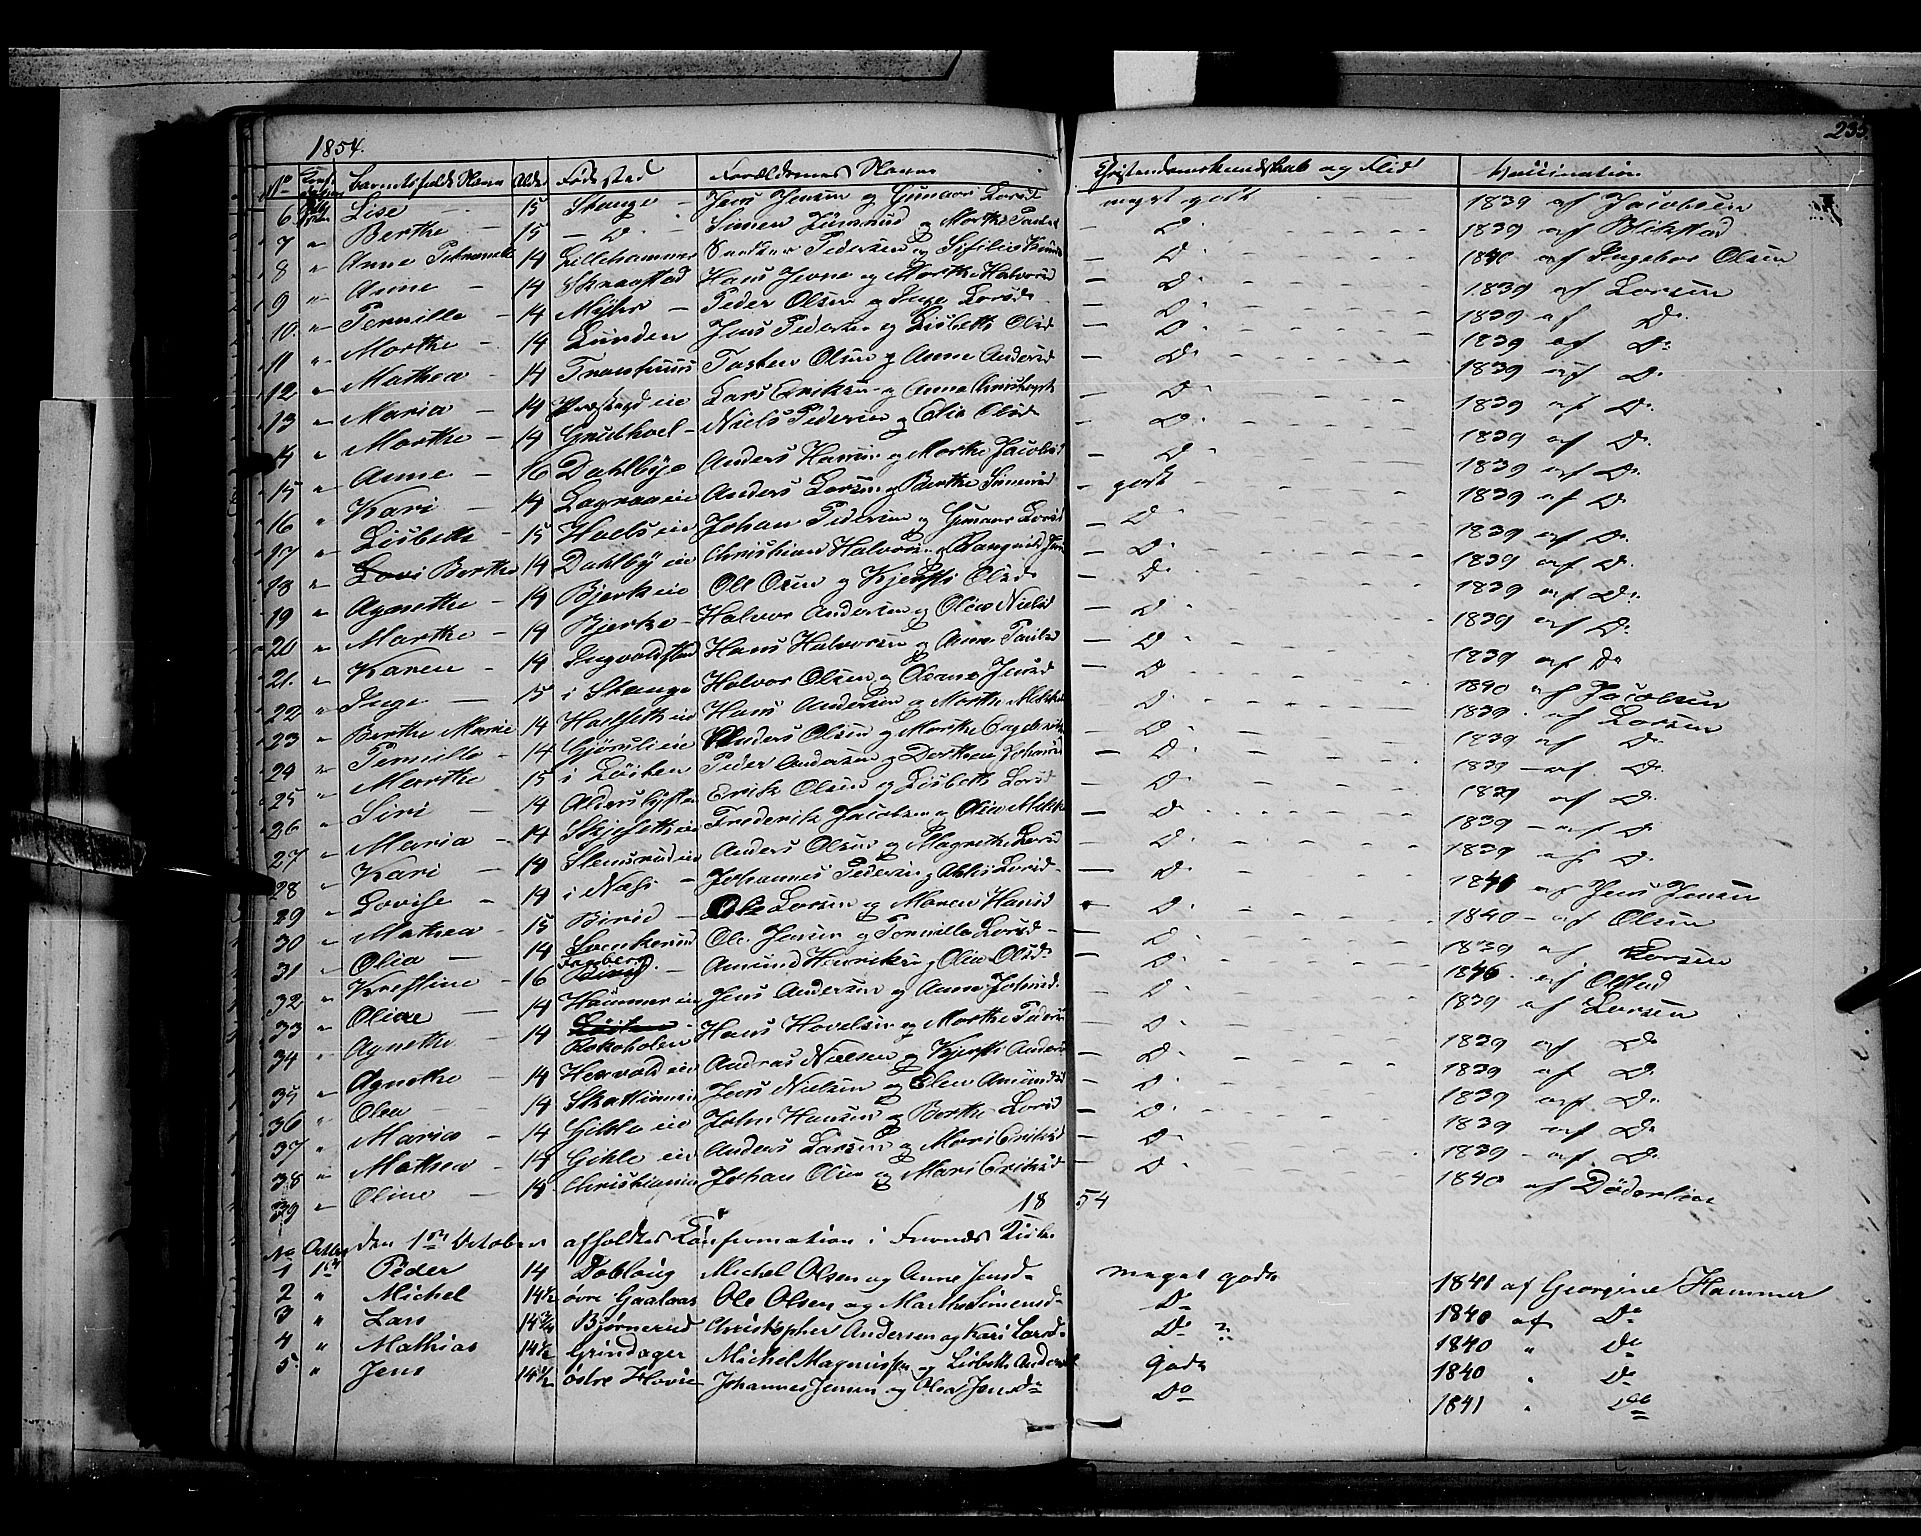 1854.
235.
No Barnets fulde Navn Alder Fødested Forældrenes Navne Christendomskundskab og Flid Vaccination
6 Lise - 15 Stange - Jens Jensen og Gunnor Larsd meget godt 1839 af Jacobsen
7 " Berthe - 15 - D. - Simen og Marthe Paulsd - D 1839 af Blikstad
8 " Anne Petronelle 14 Lillehammer Pedersen og - D 1840 af Ingebor Olsen
9 " Anne - 14 Skraastad Hans Jevne og Marthe Halvorsd - D 1839 af Larsen
10 " Pernille - 14 Mÿhr - Peder Olsen og Inge Larsd - D 1839 af Do
11 " Marthe - 14 Lunden Jens Pedersen og Lisbeth Olsd - D 1839 af Do
12 " Mathea - 14 Torsten Olsen og Anne Andersd - Do 1839 af Do
13 " Maria - 14 Præstegd eie Lars Eriksen og Anne - D 1839 af Do
14 " Marthe - 14 - Niels Pedersen og Olsd - D 1839 af Do
15 " Anne - 16 Dahlbye Anders Hansen og Marthe Jacobsd - D 1839 af Do
16 " Kari - 14 eie Anders Larsen og Berthe Simensd - godt 1839 af Do
17 " Lisbeth - 15 Hoels eie Johan Pedersen og Gunnor Larsd - D 1839 af Do
18 " Berthe 14 Dahlby eie Christian Halvorsen og - D 1839 af Do
19 " Agnethe - 14 Bjerke eie Ole Olsen og Kjersti Olsd - D 1839 af Do
20 " Marthe - 14 Bjerke - Halvor Andersen og Olia Nielsd - D 1839 af Do
21 " Karen - 14 Ingvoldstad Hans Halvorsen og Anne Paulsd - D 1839 af Do
22 " Inge - 15 i Stange Halvor Olsen og Jensd - D 1840 af Jacobsen
23 " Berthe Marie 14 eie Hans Andersen og Marthe - D 1839 af Larsen
24 " Pernille - 14 Gjørsli eie Anders Olsen og Marthe Engebretsd - D 1839 af Do
25 " Marthe 15 i Løiten Peder Andersen og Dorthea Johansd - D 1839 - af Do
26 " Siri - 14 Erik Olsen og Lisbeth Larsd - D 1839 af Do
27 " Maria - 14 Skjeseth eie Frederik Jacobsen og Olia - D 1839 - af Do
28 " Kari - 14 Stensrud eie Anders Olsen og Magrethe Larsd - D 1839 af Do
29 " Lovise - 14 i Næs - Johannes Pedersen og Larsd - D 1841 af Jens Jensen
30 " Mathea - 15 Birid - Ole Larsen og Maren Hansd - D 1840 - af Olsen
31 " Olia - 14 Svenkerud Ole Jensen og Pernille Larsd - - D 1839 af Larsen
32 " Kristine - 16 Birid - Amund Henriksen og Olia Olsd - - D 1840 af Olstad
33 " Oline - 14 Hammer eie Jens Andersen og Anne Johansd - - D 1839 af Larsen
34 " Agnethe - 14 Løiten Hans Hovelsen og Marthe Pedersd - D 1839 af Do
35 " Agnethe - 14 Hervold eie Andreas Nielsen og Kjersti Andersd - D 1839 af Do
36 " Olea - 14 Jens Nielsen og Olea Amundsd - D 1839 af Do
37 " Maria - 14 Gihle eie John Hansen og Berthe Larsd - D 1839 af Do
38 " Mathea - 14 Gihle eie Anders Larsen og Mari Eriksd - D 1839 - af Do
39 " Oline - 14 Christiania Johan Olsen og Mari Eriksd - D 1840 af Døderlein
1854
No Octbr den 1ste October afholdtes Confirmation i Furnæs Kirke
1 1ste Peder 14 Doblaug Michel Olsen og Anne Jensd- meget godt 1841 af Georgine Hammer
2 " Michel 14½ øvre Gaalaas Ole Olsen og Marthe Simensd- Do 1840 af Do
3 " Lars 14¾ Bjørnerud Christopher Andersen og Kari Larsd- Do ? 1840 " Do
4 " Mathias 14½ Grindager Michel Magnussen og Lisbeth Andersd Godt 1840 " Do
5 " Jens 14½ østre Hovie Johannes Jensen og Olea Jensd Do 1841 " Do